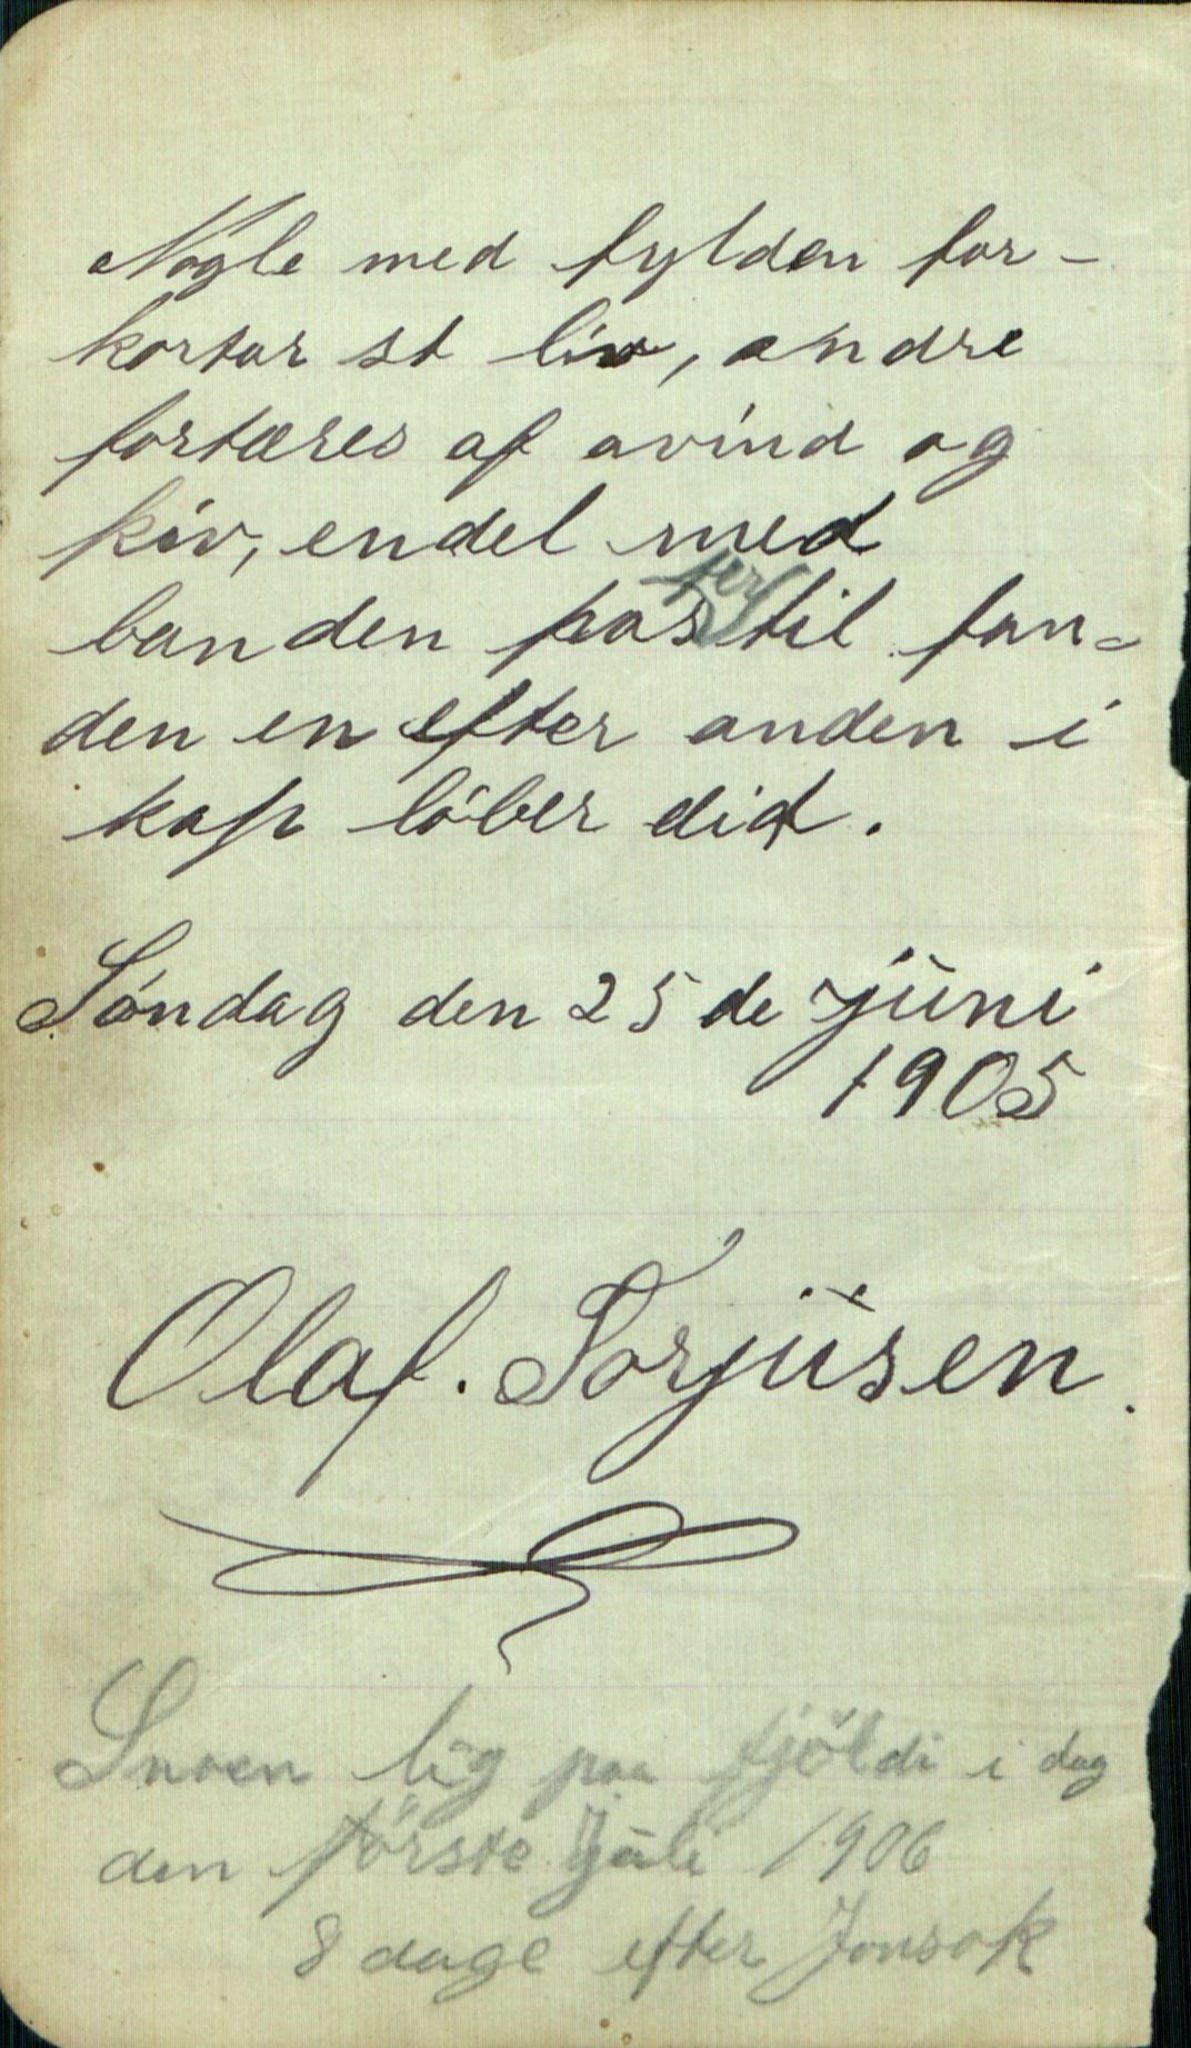 Nogle med fylden for-
kortar st liv, andre
fortæres af avind og
kiv, endel med
banden passer til fan-
den en efter anden i
kap löber did.
Søndag den 25 de juni
1905
Olaf. Torjusen.
Sneen lig paa fjöldi i dag
den förste Juli 1906
8 dage efter Jonsok